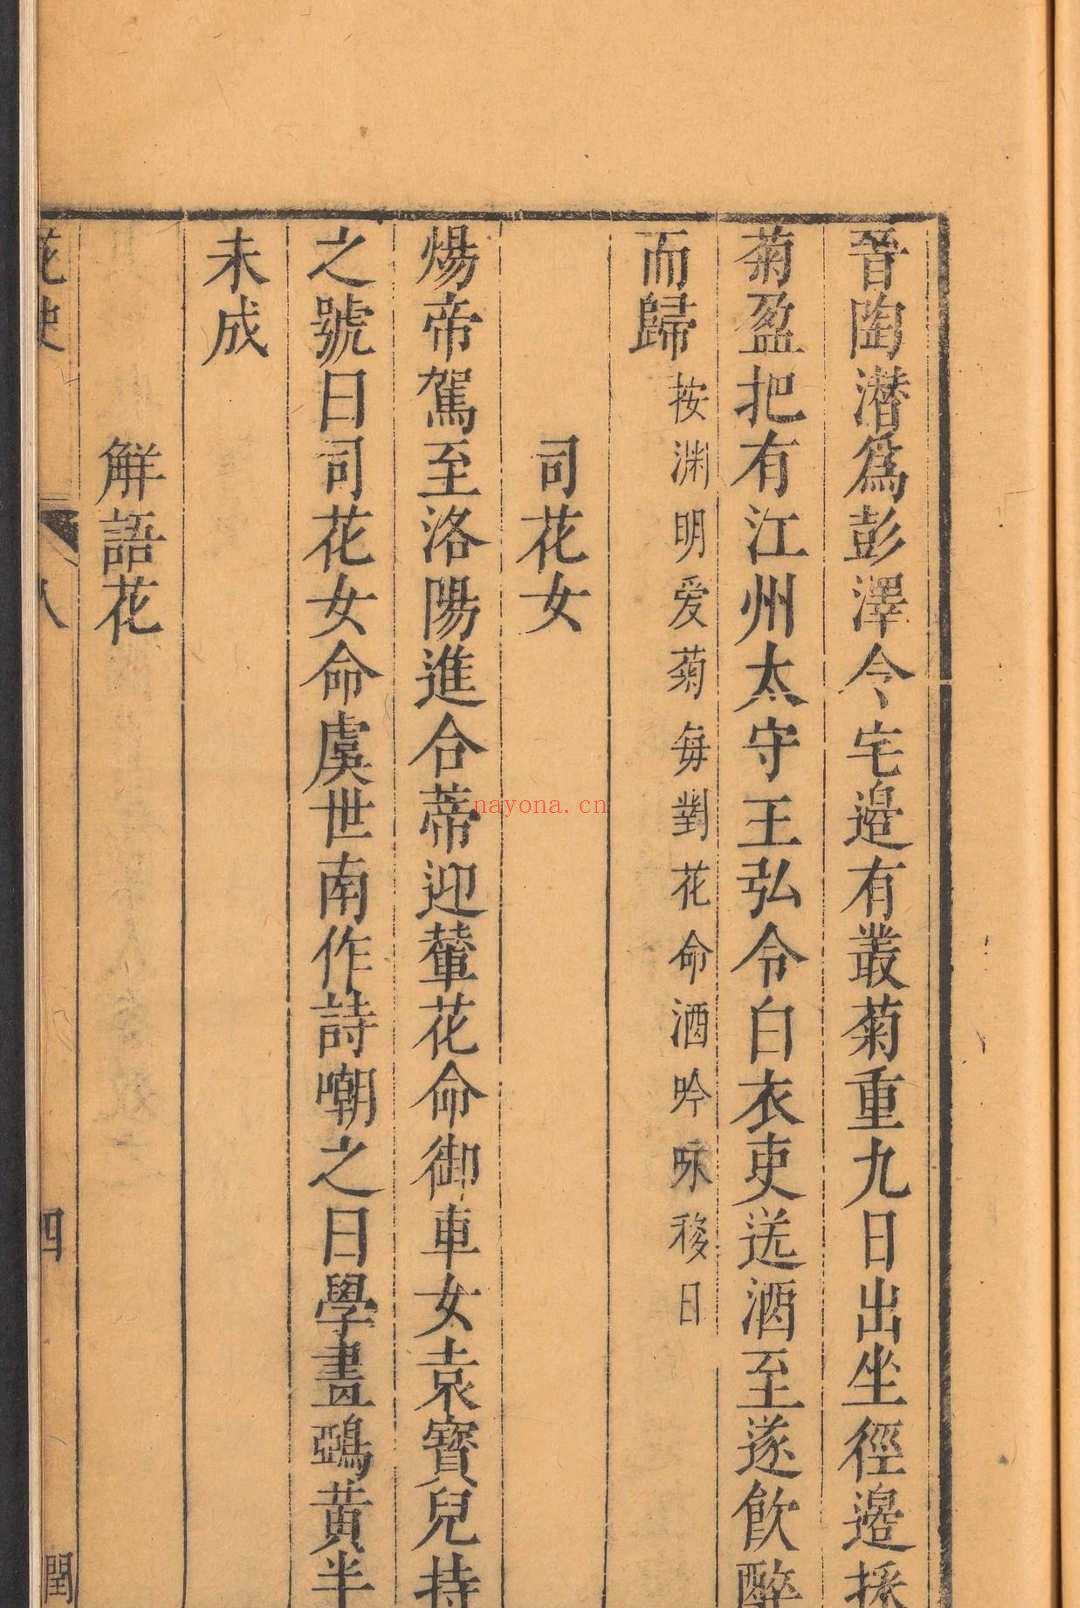 晉陶潜爲彭澤令宅邉有叢菊重九日出坐徑邉採
菊盈把有江州太守王弘令白衣吏送酒至遂飲醉
而歸按渊明爱菊每對花命酒吟咏移日
司花女
煬帝駕至洛陽進合蒂迎輦花命御車女袁寳兒持
之號曰司花女命虞世南作詩嘲之曰學畫鵶黃半
未成
解語花
花史
八
四
閏
nayona.cn